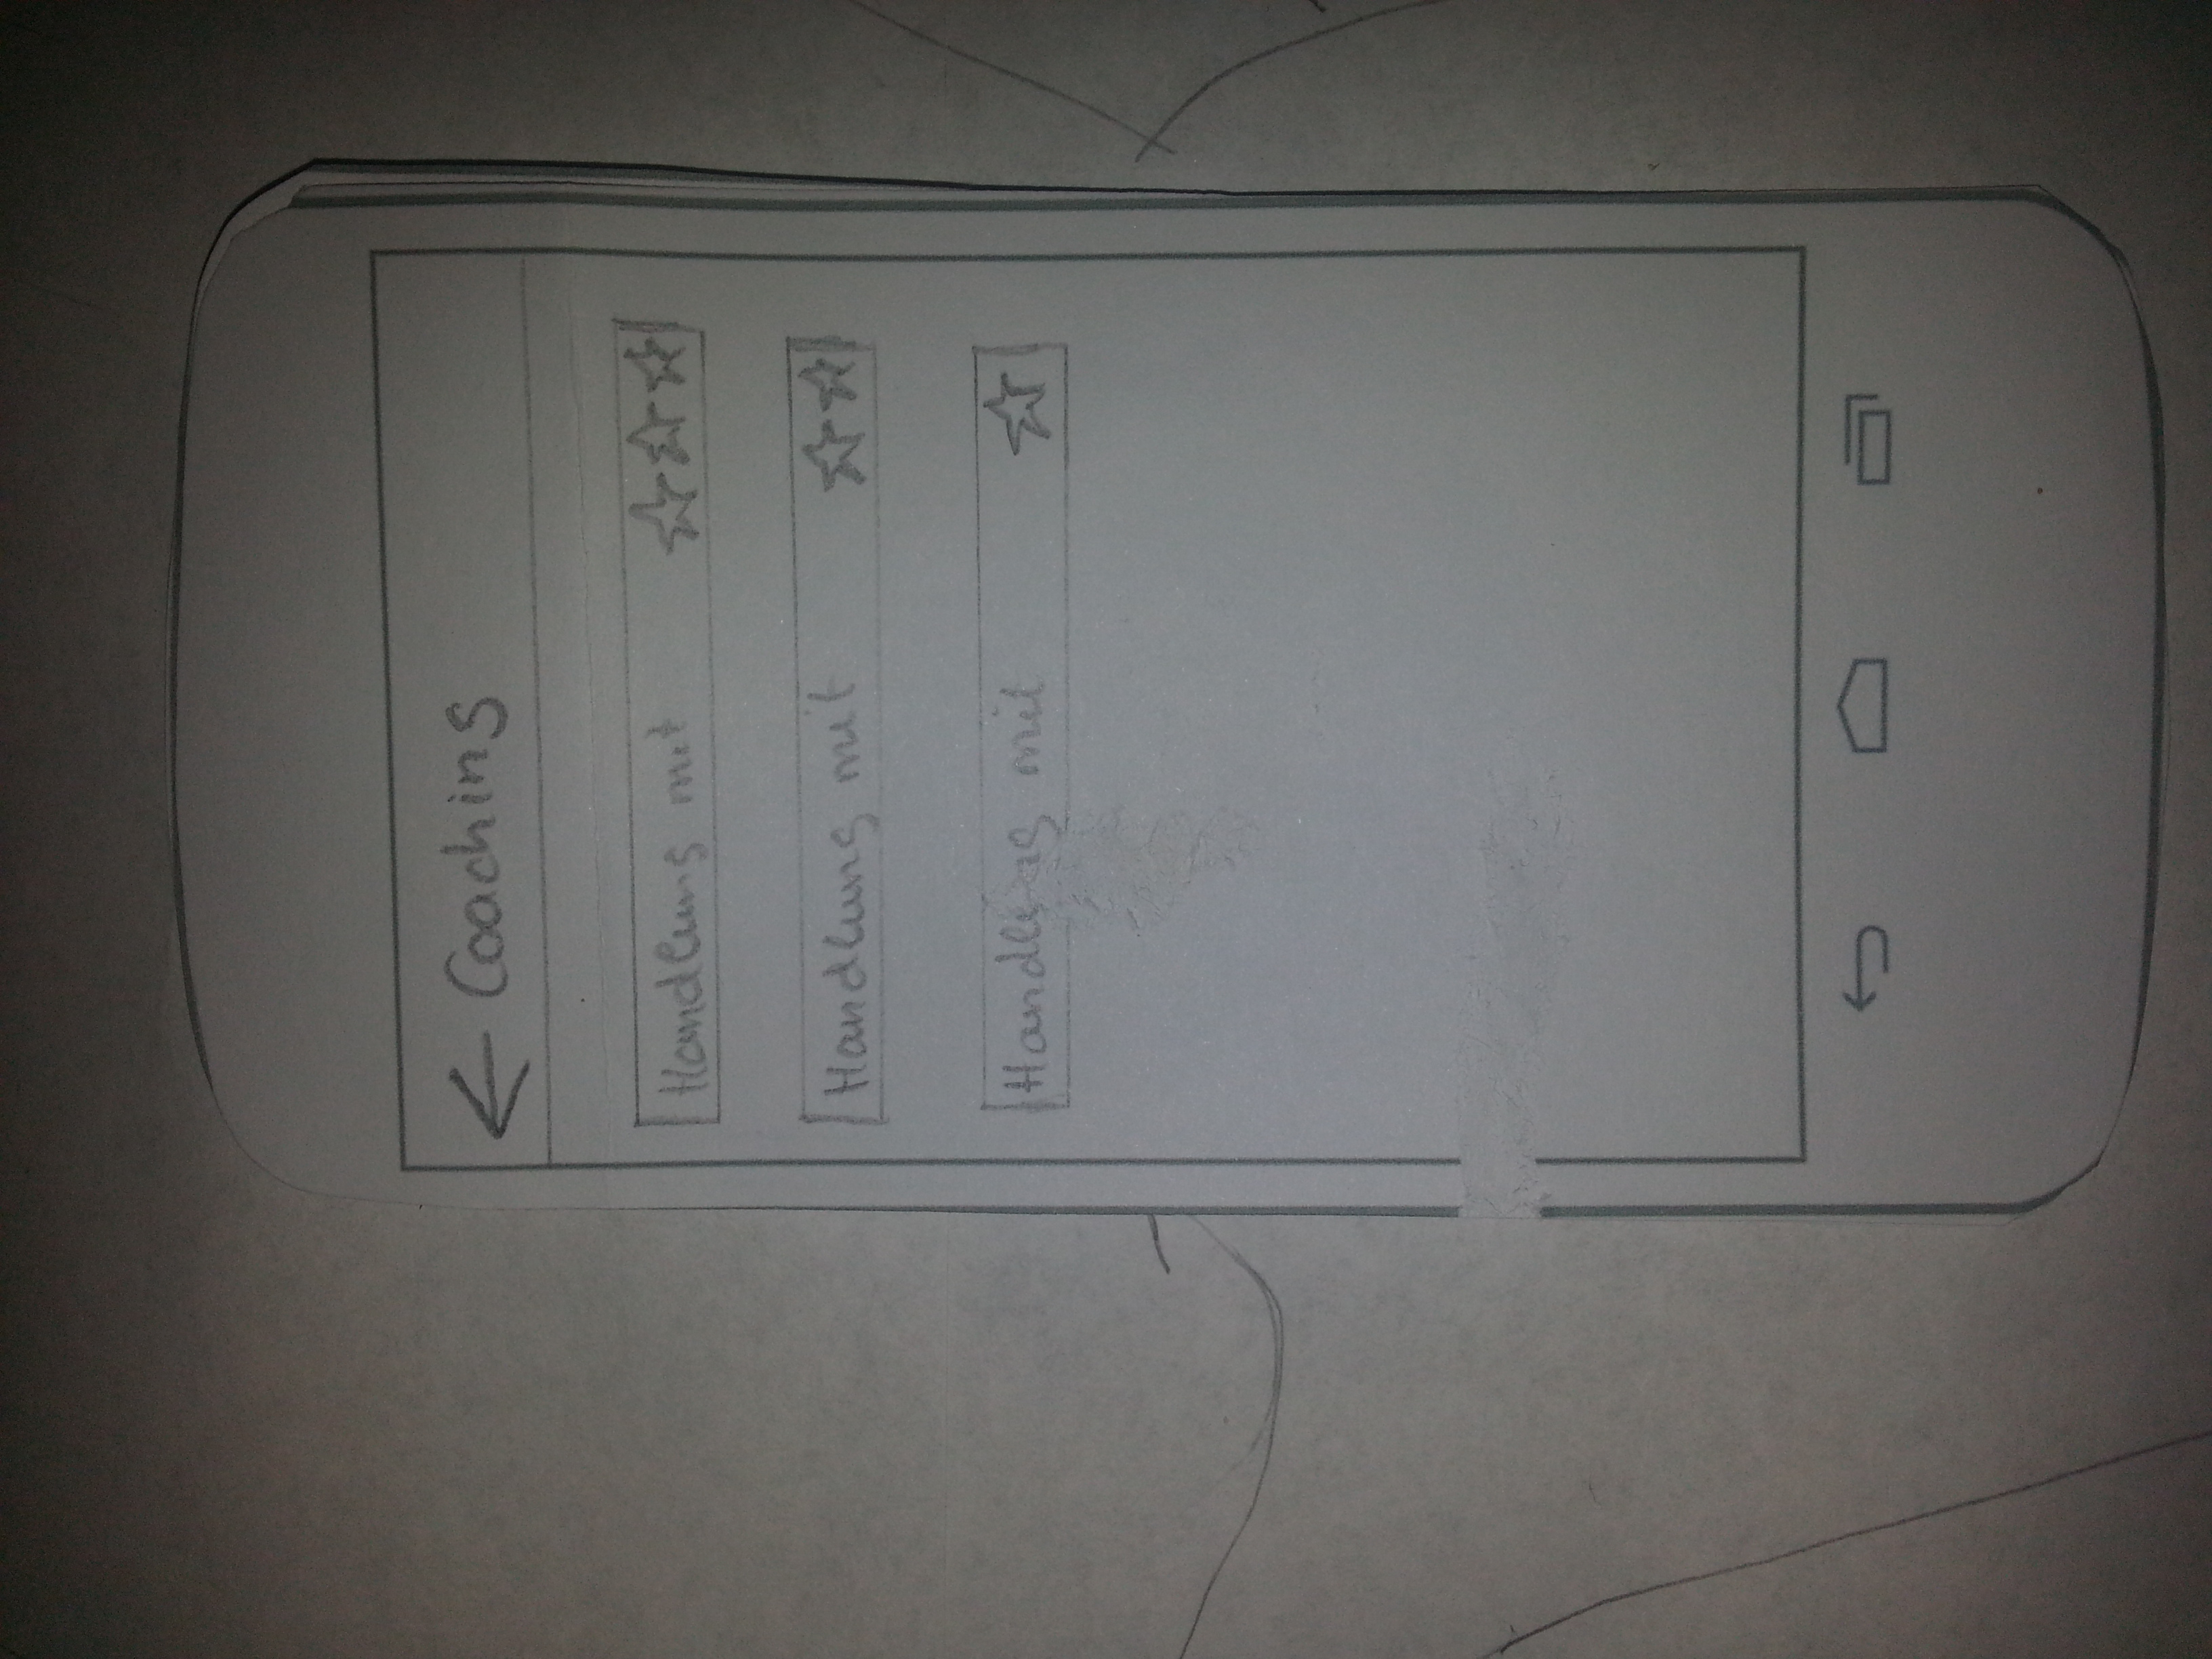 ← Coaching
Handlung mit ☆☆☆
Handlung mit ☆☆
Handlung mit ☆